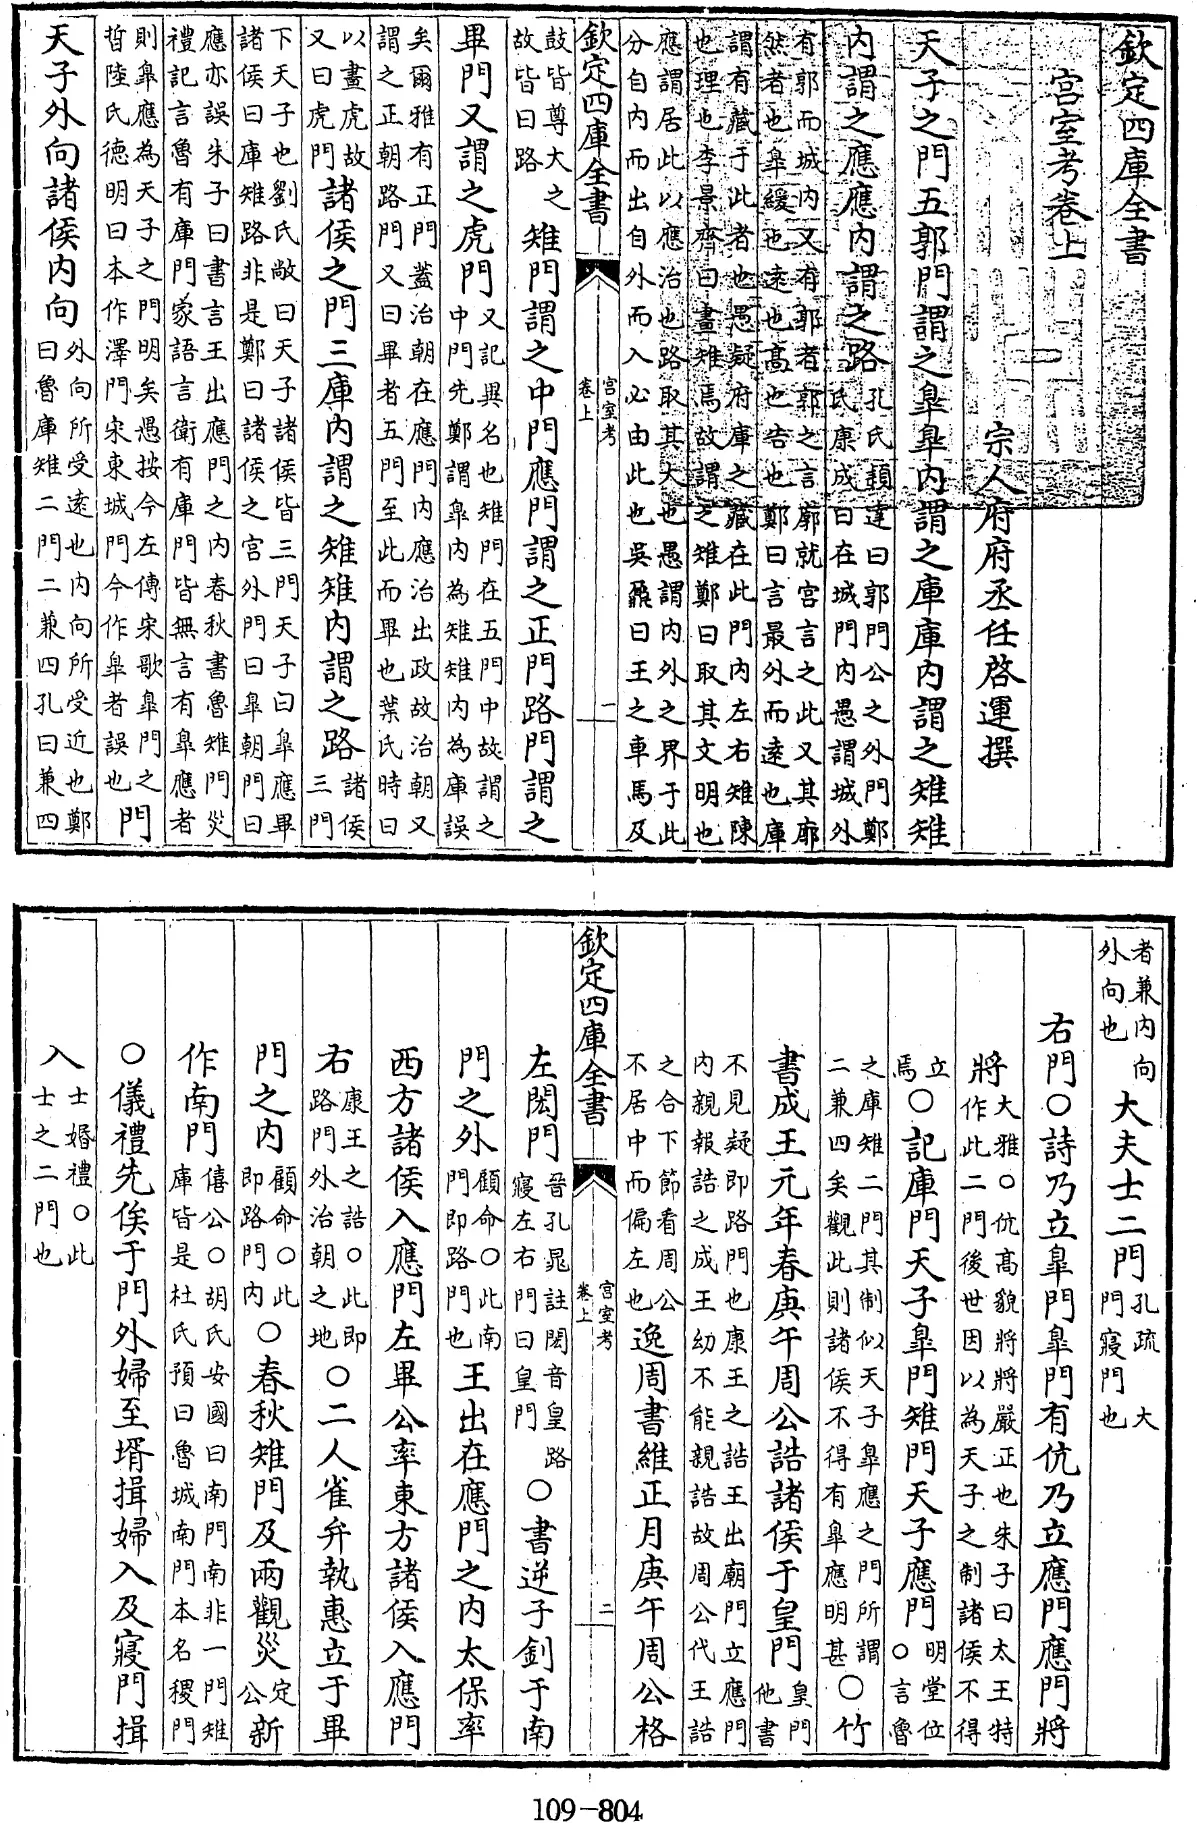 欽定四庫全書
宫室考卷上
宗人府府丞任啓運撰
天子之門五郭門謂之臯臯内謂之庫庫内謂之雉雉
内謂之應應内謂之路孔氏頴達曰郭門公之外門鄭
氏康成曰在城門内愚謂城外
有郭而城内又有郭者郭之言廓就宫言之此又其廓
然者也臯緩也遠也髙也告也鄭曰言最外而遠也庫
謂有藏于此者也愚疑府庫之藏在此門内左右雉陳
也理也李景齊曰畫雉焉故謂之雉鄭曰取其文明也
應謂居此以應治也路取其大也愚謂内外之界于此
分自内而出自外而入必由此也吳鼐曰王之車馬及
欽定四庫全書
宫室考
卷上
一
鼓皆尊大之
故皆曰路
雉門謂之中門應門謂之正門路門謂之
畢門又謂之虎門又記異名也雉門在五門中故謂之
中門先鄭謂臯内為雉雉内為庫誤
矣爾雅有正門蓋治朝在應門内應治出政故治朝又
謂之正朝路門又曰畢者五門至此而畢也葉氏時曰
以畫虎故
又曰虎門
諸侯之門三庫内謂之雉雉内謂之路諸侯
三門
下天子也劉氏敞曰天子諸侯皆三門天子曰臯應畢
諸侯曰庫雉路非是鄭曰諸侯之宫外門曰臯朝門曰
應亦誤朱子曰書言王出應門之内春秋書魯雉門災
禮記言魯有庫門家語言衛有庫門皆無言有臯應者
則臯應為天子之門明矣愚按今左傳宋歌臯門之
晢陸氏德明曰本作澤門宋東城門今作臯者誤也
門
天子外向諸侯内向外向所受遠也内向所受近也鄭
曰魯庫雉二門二兼四孔曰兼四
者兼内向
外向也
大夫士二門孔疏大
門寢門也
右門○詩乃立臯門臯門有伉乃立應門應門將
將大雅○伉髙貌將將嚴正也朱子曰太王特
作此二門後世因以為天子之制諸侯不得
立
焉
○記庫門天子臯門雉門天子應門明堂位
○言魯
之庫雉二門其制似天子臯應之門所謂
二兼四矣觀此則諸侯不得有臯應明甚
○竹
書成王元年春庚午周公誥諸侯于皇門皇門
他書
不見疑即路門也康王之誥王出廟門立應門
内親報誥之成王幼不能親誥故周公代王誥
之合下節看周公
不居中而偏左也
逸周書維正月庚午周公格
欽定四庫全書
宫室考
卷上
二
左閎門晉孔晁註閎音皇路
寢左右門曰皇門
○書逆子釗于南
門之外顧命○此南
門即路門也
王出在應門之内太保率
西方諸侯入應門左畢公率東方諸侯入應門
右康王之誥○此即
路門外治朝之地
○二人雀弁執惠立于畢
門之内顧命○此
即路門内
○春秋雉門及兩觀災定
公
新
作南門僖公○胡氏安國曰南門南非一門雉
庫皆是杜氏預曰魯城南門本名稷門
○儀禮先俟于門外婦至壻揖婦入及寢門揖
入士婚禮○此
士之二門也
109-804